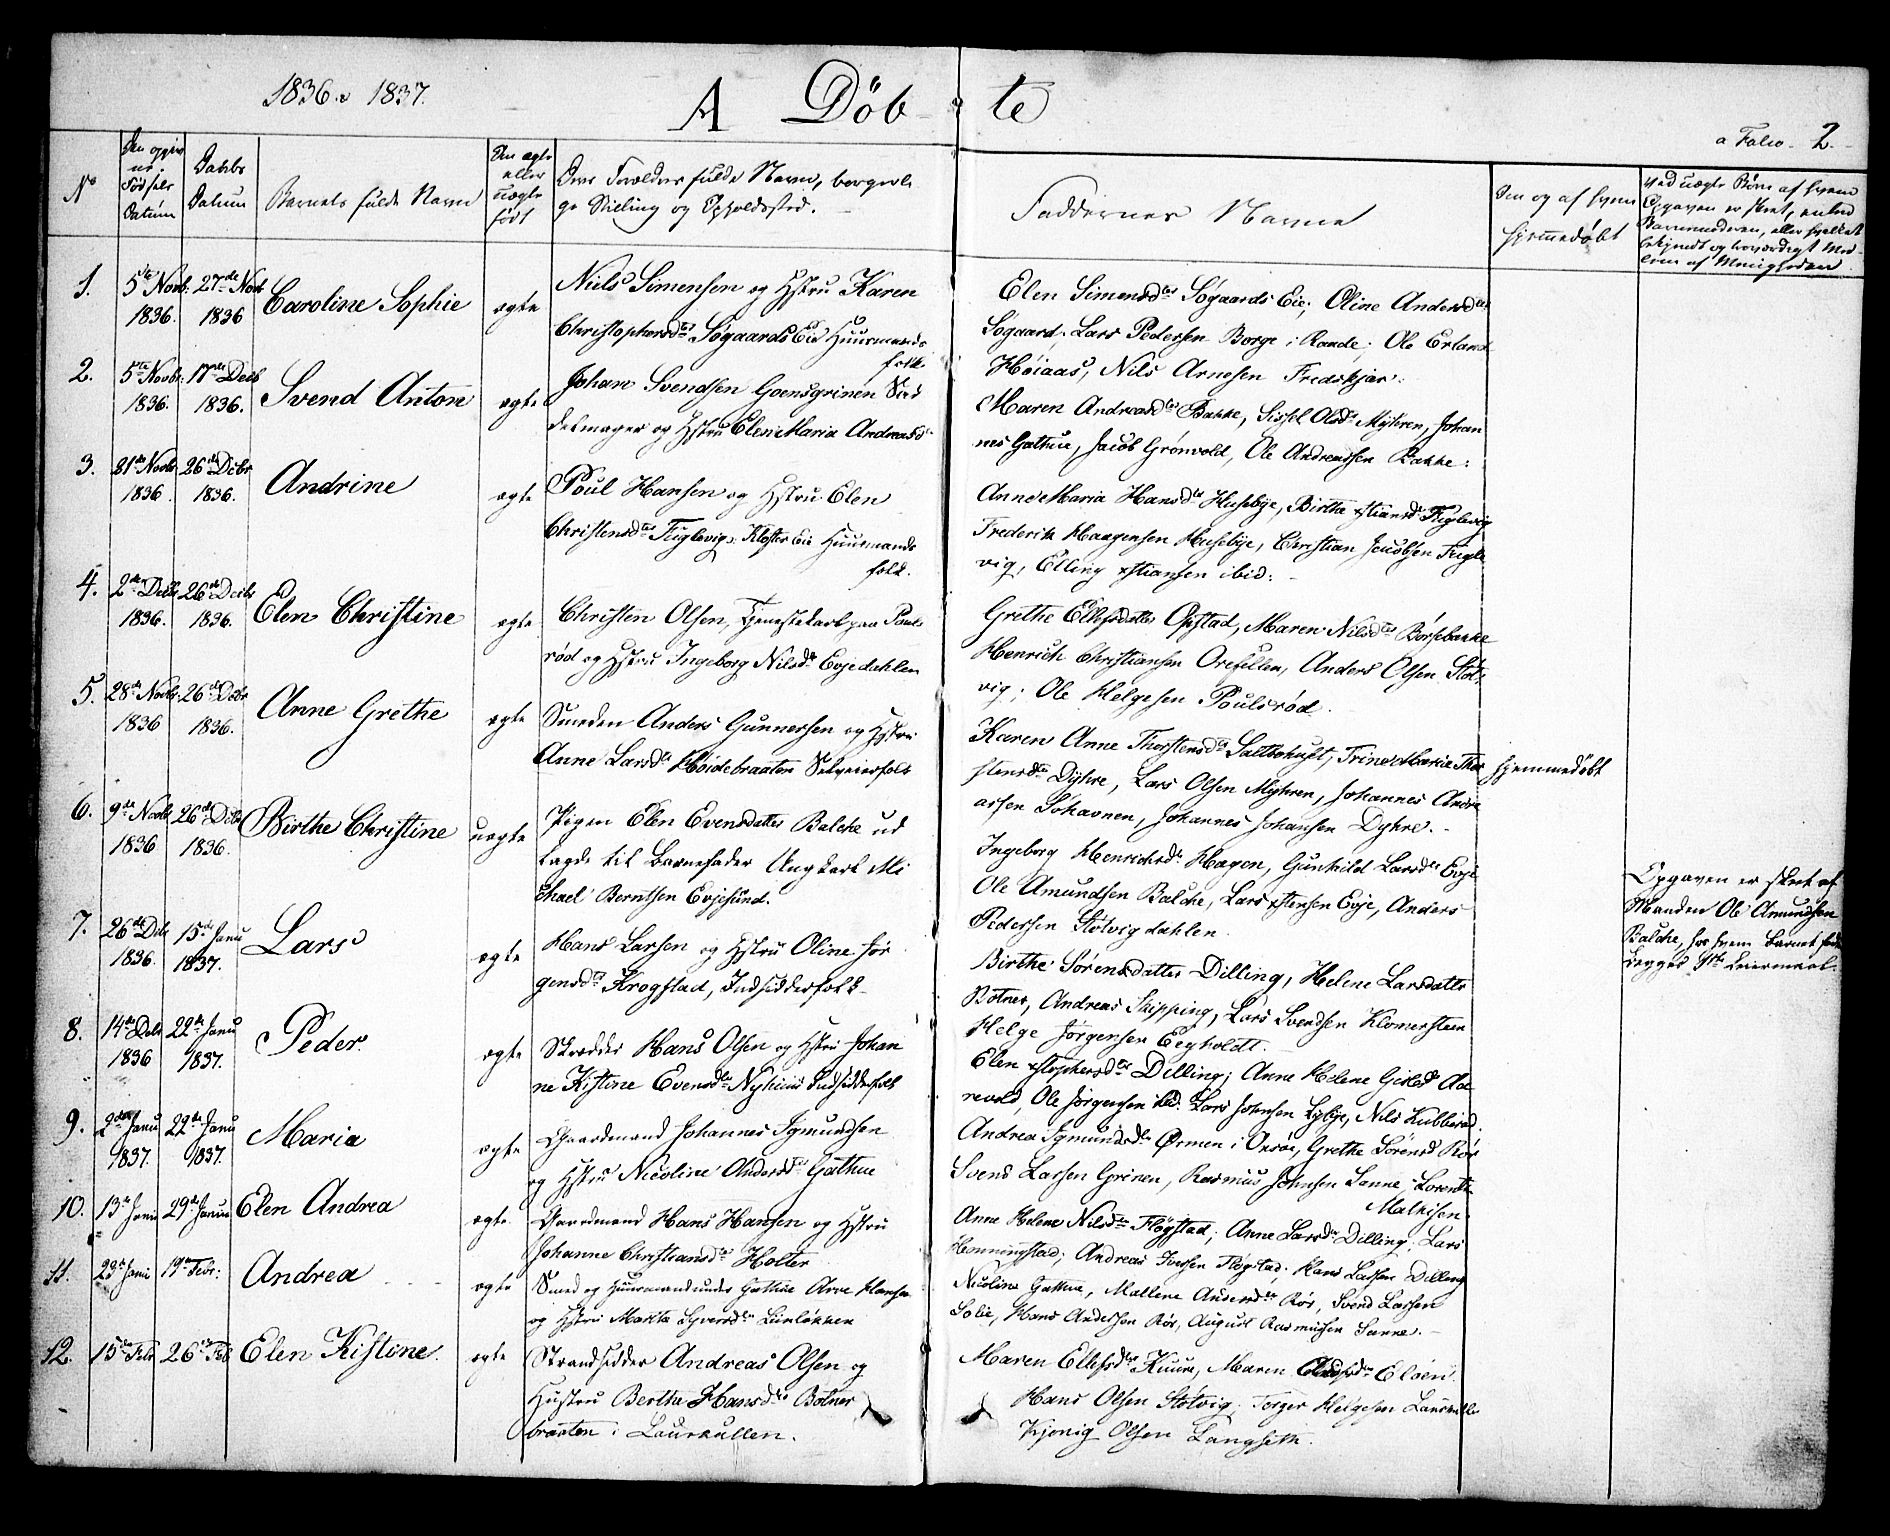 1836 & 1837.
A Döb te
a Folio 2.
No
Den opgivne Fødsels Datum
Daabs Datum
Barnets fulde Navn
Om ægte eller uægte født
Ders Forældres fulde Navn, borgerlige Stilling og Opholdssted.
Faddernes Navne
hjemmedøbt
1. 5te Novb: 1836. 27de Novb 1836 Caroline Sophie ægte
Niels Simensen og Hstru Karen
Christophersdtr Søgaards Eie Huusmands
folk
Elen Simensdtr Søgaards Eie; Oline Andersdtr
Søgaard. Lars Pedersen Borge i Raade; Ole Erland
Høiaas, Nils Arnesen Fredskjær:
2. 5te Novb: 1836. 17de Decb 1836. Svend Anton ægte
Johan Svendsen Goensgrinen
og Hstru Elen Maria Andreasd
Maren Andreasdtr Bakke, Sissel Olsdtr Myhren, Johan
nes Gathue, Jacob Grönvold, Ole Andreassen Bakke:
3. 21de Novb 1836. 26de Debr 1836. Andrine ægte
Poul Hansen og Hstru Elen
Christensdtr Fuglevig, Kloster Eie Huusmands
folk.
Anne Maria Hansdtr Husebye, Birthe Xstiansdtr Fuglevig
Frederik Haagensen Husebye, Christian Jacobsen Fugle
vig, Elling Xstiansen ibid:
4. 2den Decb 1836. 26de Decbr 1836. Elen Christine ægte
Christen Olsen, Tjenestekarl paa Pouls
rød og Hstru Ingeborg Nilsdtr Evjedahlen
Grethe Ellefsdatter Opstad, Maren Nilsdtr Börsebakke
Henrich Christiansen Orefellen, Anders Olsen Støt
vig; Ole Helgesen Poulsrød.
5. 28de Novbr. 1836 26de Debr 1836. Anne Grethe ægte
Smeden Anders Gunnersen og Hstru
Anne Larsdtr Høidebraaten Selveierfolk
Karen Anne Thorstensdtr Saltbohuset, Trine Maria Thor
stensdtr Dyhre, Lars Olsen Myhren, Johannes Andre
assen Søhavnen, Johannes Johansen Dyhre.
hjemmedøbt
6. 9de Novb 1836 26de Debr 1836. Birthe Christine uægte
Pigen Elen Evensdatter Balche ud
lagde til Barnefader Ungkarl Mi
chael Berntsen Evjesund.
Ingeborg Henrichsdtr Hagen, Gunhild Larsdtr Evje
Ole Amundsen Balche, Lars Xstensen Evje, Anders
Pedersen Støtvigdahlen.
Opgaven er skeet af
Manden Ole Amundsen
Balche, hos hvem Barnet
7. 26de Debr 1836. 15de Janu 1837. Lars ægte
Hans Larsen og Hstru Oline Jør
gensdtr Krogstad, Indsidderfolk
Birthe Sørensdatter Dilling, Helene Larsdatter
Botner, Andreas Skipping, Lars Svendsen Klomersteen
Helge Jørgensen Eegholdt.
8. 14de Debr 1836 22de Janu 1837. Peder. ægte
Skrædder Hans Olsen og Hstru Johan
ne Kistine Evensdtr Nyhuus Indsidderfolk
Elen Xstophersdtr Dilling; Anne Helene Gislesdtr Aa
revold, Ole Jørgensen ibid. Lars Johnsen Lybye, Nils Kubberød.
9. 2den Janu 1837. 22de Janu 1837. Maria ægte
Gaardmand Johannes Sigmundsen
og Hstru Nicoline Andersdtr Gathue
Andrea Sigmundsdtr Ørmen i Onsøe, Grethe Sörensd Rör
Svend Larsen Grinen, Rasmus Johnsen Sanne. Lorents
Mathisen.
10. 13de Janu 29de Janu Elen Andrea ægte
Gaardmand Hans Hansen og Hstru
Johanne Christiansdtr Holter
Anne Helene Nilsdtr Fløgstad; Anne Larsdtr Dilling; Lars
Henningstad; Andreas Iversen Fløgstad; Hans Larsen Dilling
11. 23de Janu 19de Febr: Andrea ægte
Smed og Huusmand under Gathue Arne Hansen
og Hstru Martha Syversdtr Lünløkken
Nicoline Gathue, Mallene Andersdtr Rör, Svend Larsen
Solie, Hans Andersen Rör, August Rasmussen Sanne.
12. 15de Febr 26de Feb Elen Kistine. ægte
Strandsidder Andreas Olsen og
Hustru Berthe Hansdtr Botner
braaten i Laurkullen.
Maren Ellefsdtr Kuure, Maren Ellefsdtr Eløen.
Hans Olsen Støtvig; Torger Helgesen Laurkullen
Kjønig Olsen Langseth.